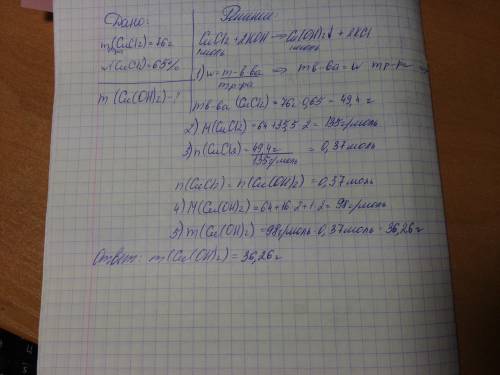 Дано:
m(CuCl2)=76г
р-ра
w(CuCl2)=65%
m(Cu(OH)2)-?
Решение
CuCl2+2KOH→Cu(OH)2↓+2KCl
1моль 1моль
1) w= m в-ва / m р-ра ⇒ m в-ва = w · m р-ра
m в-ва (CuCl2)=76г·0,65=49,4г
2) M(CuCl2)=64+35,5·2=135г/моль
3) n(CuCl2)= 49,4г / 135г/моль = 0,37моль
n(CuCl2)=n(Cu(OH)2)=0,37моль
4) M(Cu(OH)2)=64+16·2+1·2=98г/моль
5) m(Cu(OH)2)=98г/моль·0,37моль=36,26г
Ответ: m(Cu(OH)2)=36,26г